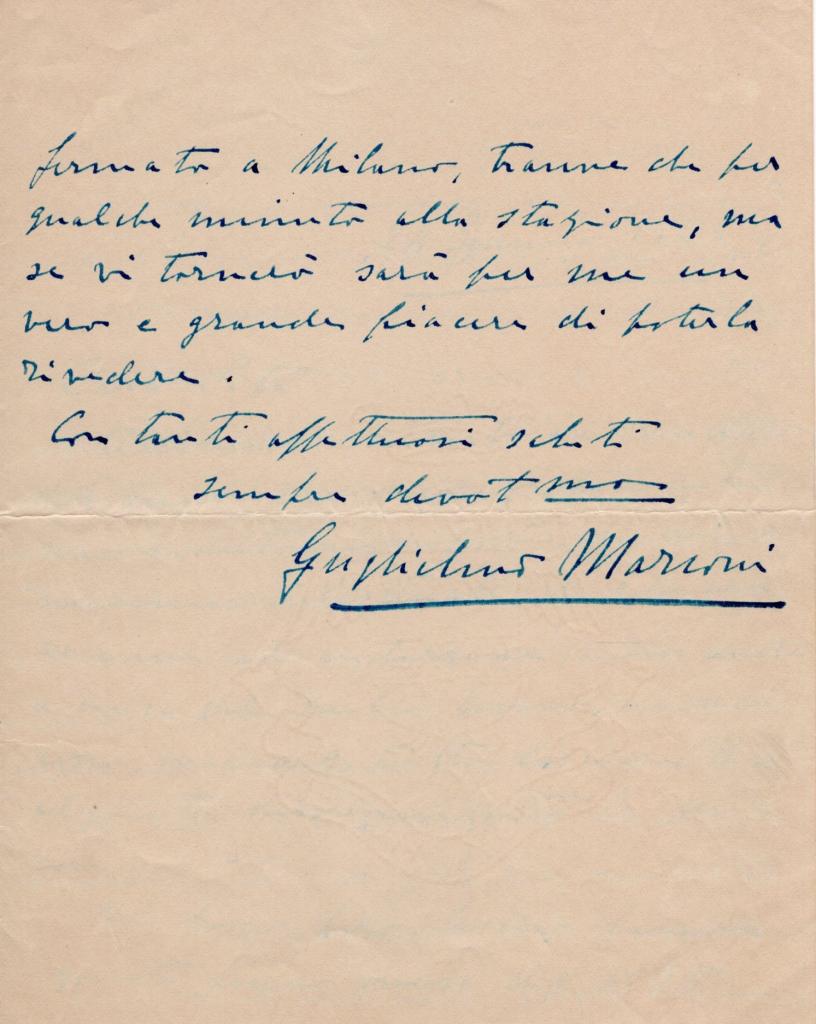 fermato a Milano, tranne che per
qualche minuto alla stazione, ma
se vi tornerò sarà per me un
vero e grande piacere di poterla
rivedere.
Con tanti affettuosi saluti
sempre devotmo
Guglielmo Marconi